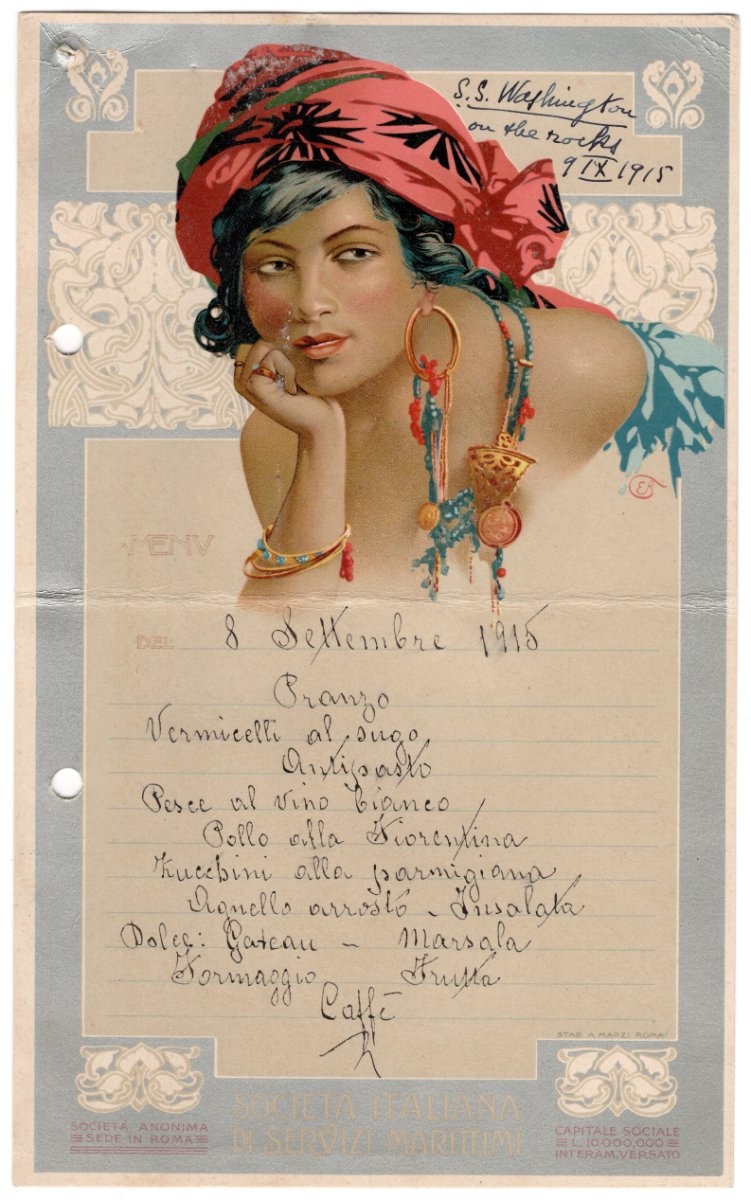 S.S. Washington
on the rocks
9 IX 1915
ER
MENU
DEL 8 Settembre 1915
Pranzo
Vermicelli al sugo
Antipasto
Pesce al vino bianco
Pollo alla Fiorentina
Zucchini alla parmigiana
Agnello arrosto - Insalata
Dolce: Gateau - Marsala
Formaggio Frutta
Caffè
STAB. A. MARZI. ROMA
SOCIETÀ ITALIANA
DI SERVIZI MARITTIMI
SOCIETÀ ANONIMA
SEDE IN ROMA
CAPITALE SOCIALE
L. 10.000.000
INTERAM. VERSATO